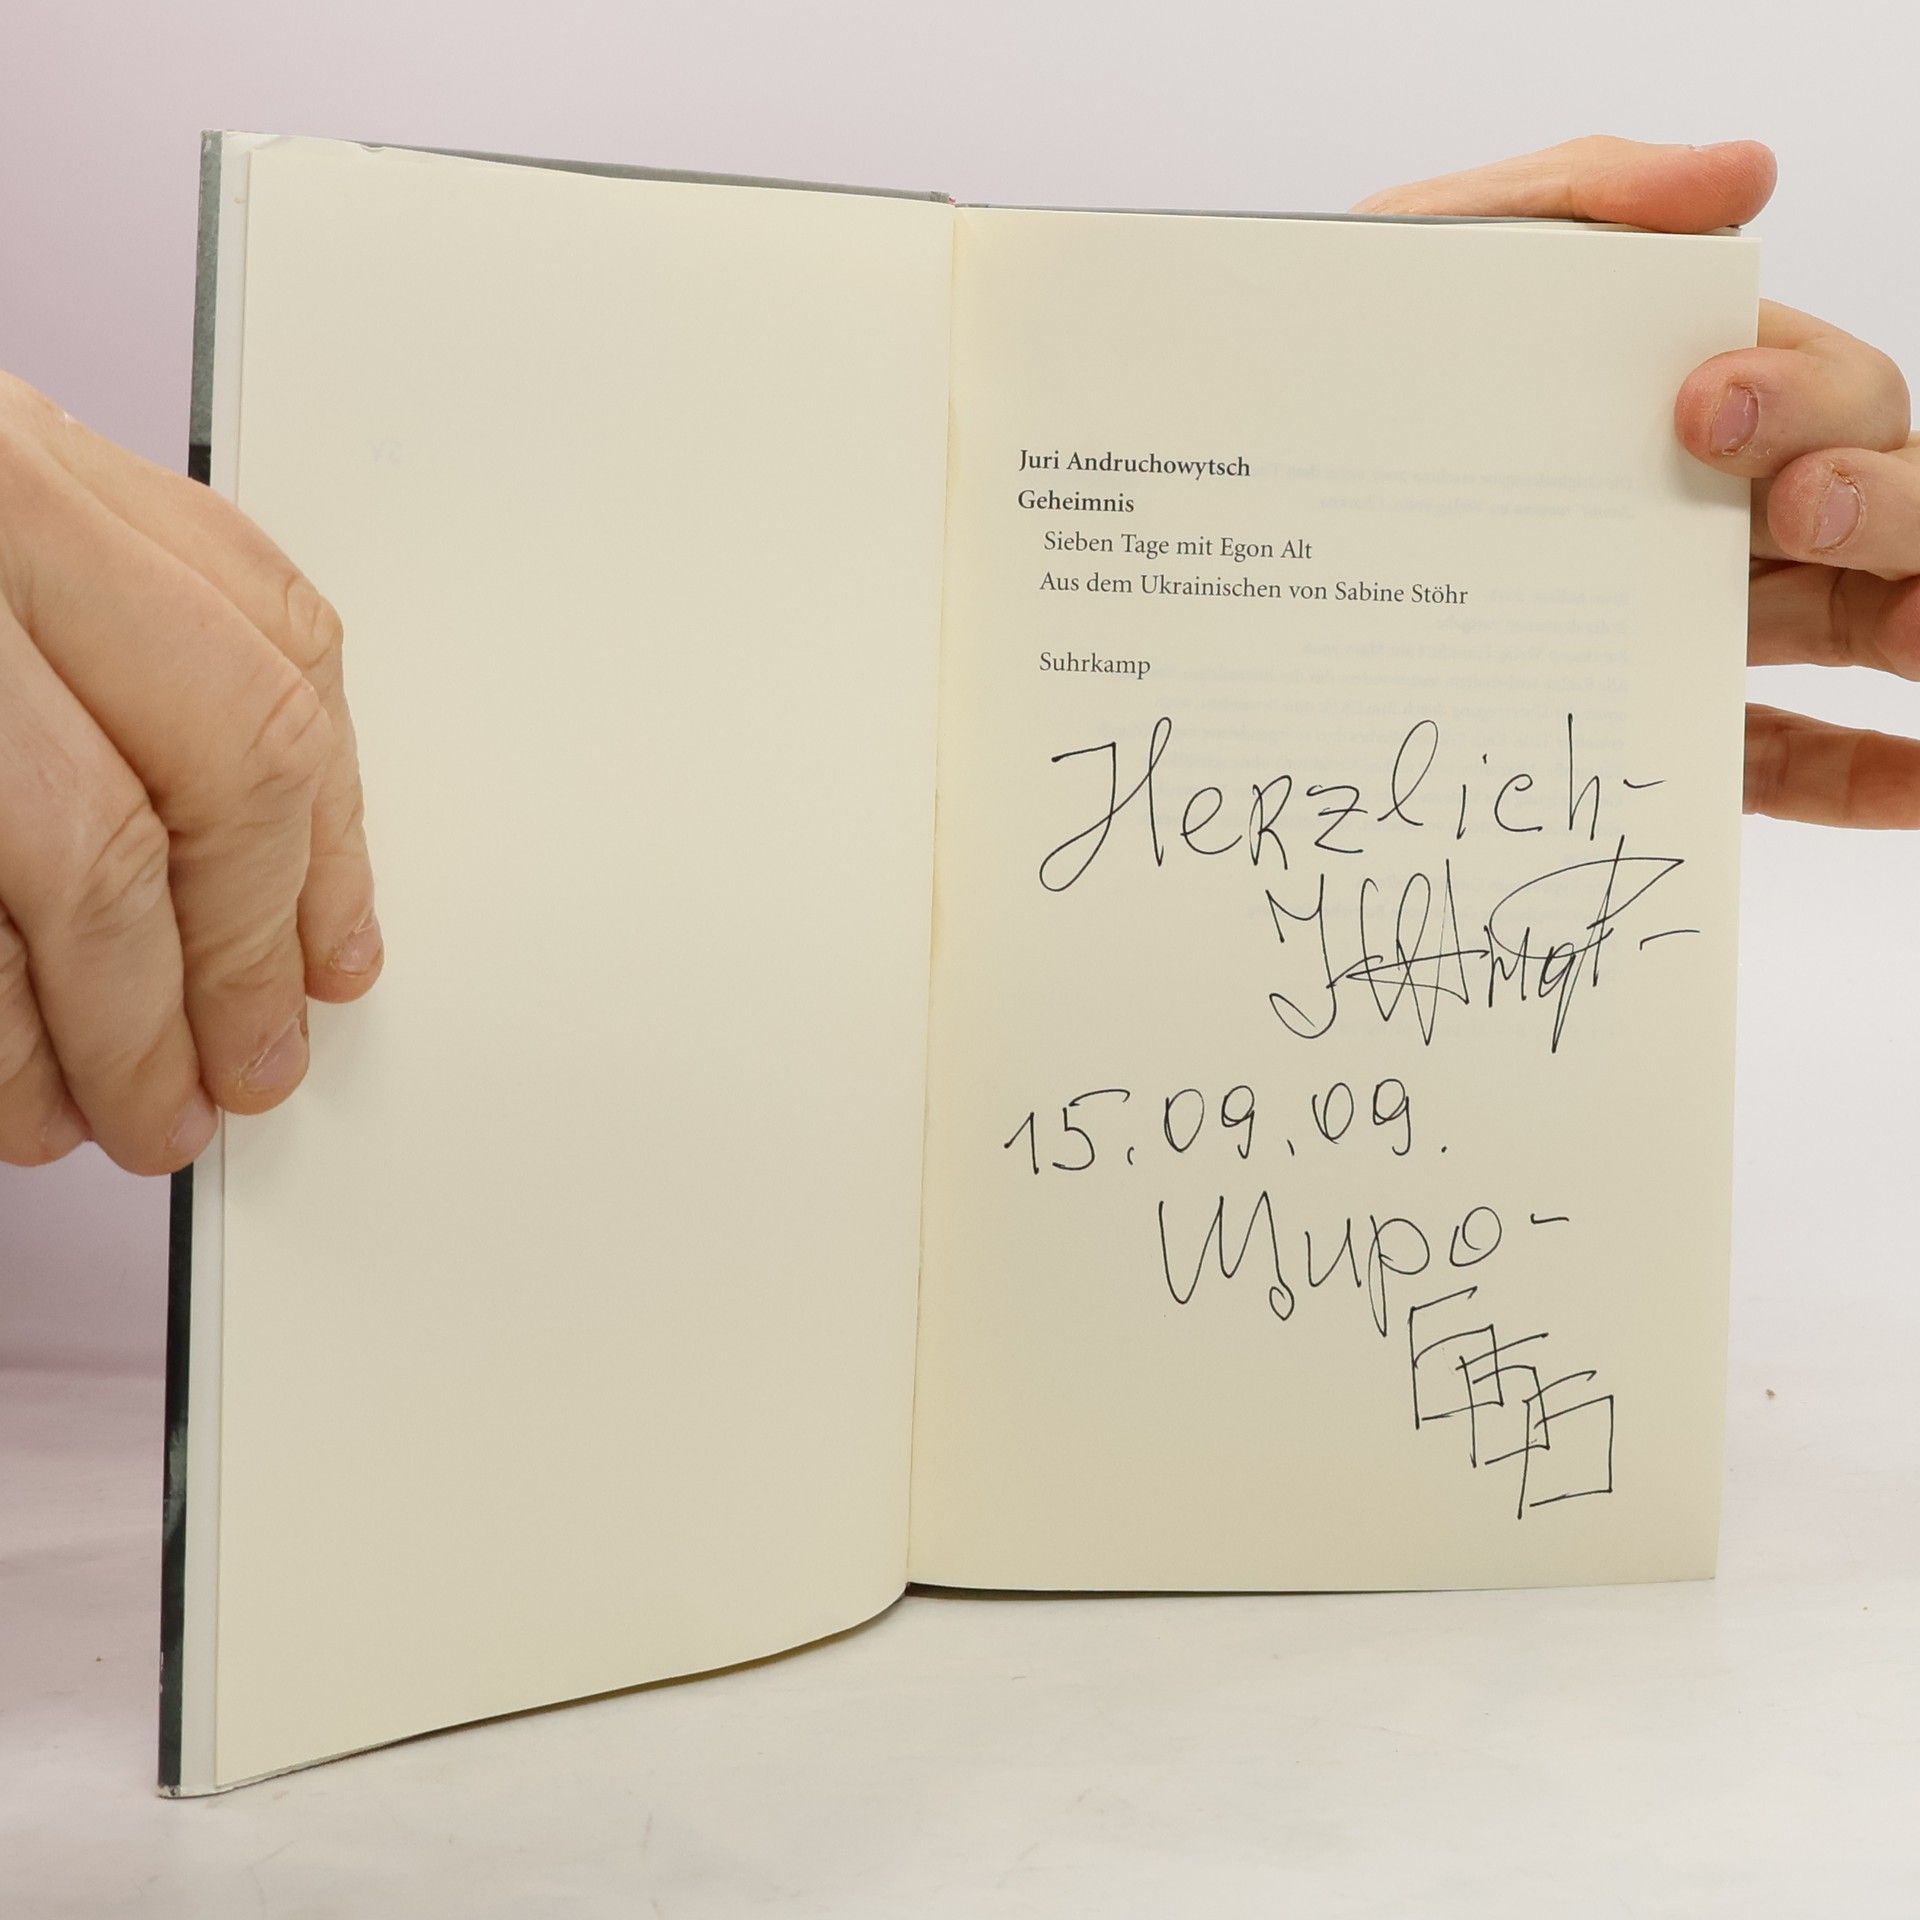 Juri Andruchowytsch
Geheimnis
Sieben Tage mit Egon Alt
Aus dem Ukrainischen von Sabine Stöhr
Suhrkamp
Herzlich-
15.09.09.
Щиро-